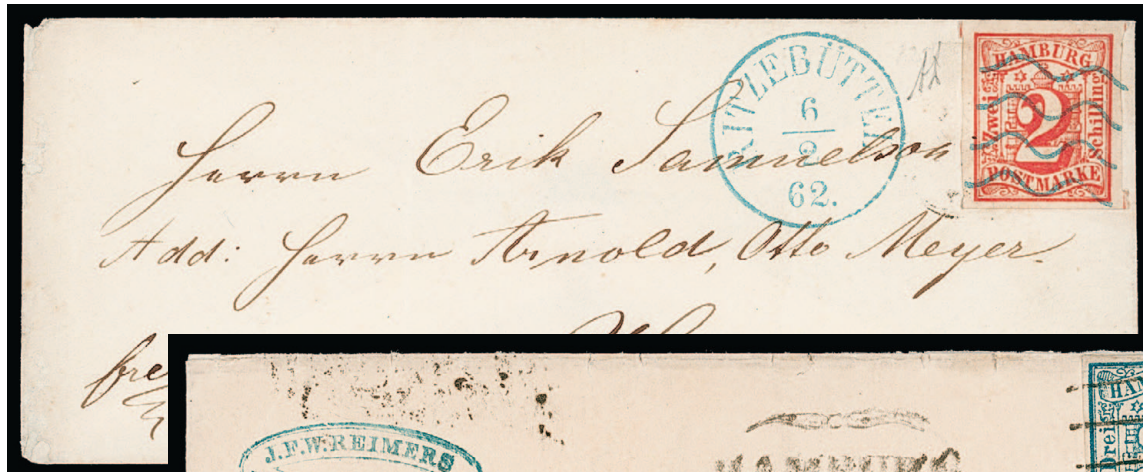 RITZEBÜTTEL
6
2
62.
HAMBURG
Zwei 2 Schilling
POSTMARKE
Herrn Erik Samuelson
Add: Herrn Arnold, Otto Meyer.
J.F.W.REIMERS
HAMBURG
HAM
Drei